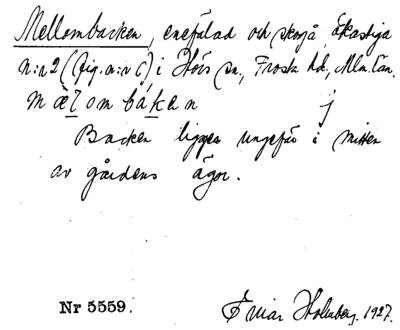 Mellombacken, enefälad och skog å Ekastiga
n:r 2 (fig. n:r 6) i Hörs sn, Frosta hd, Mlm. län.
mælombåken
Backen ligger ungefär i mitten
av gårdens ägor.
Nr 5559.
Einar Holmberg. 1927.